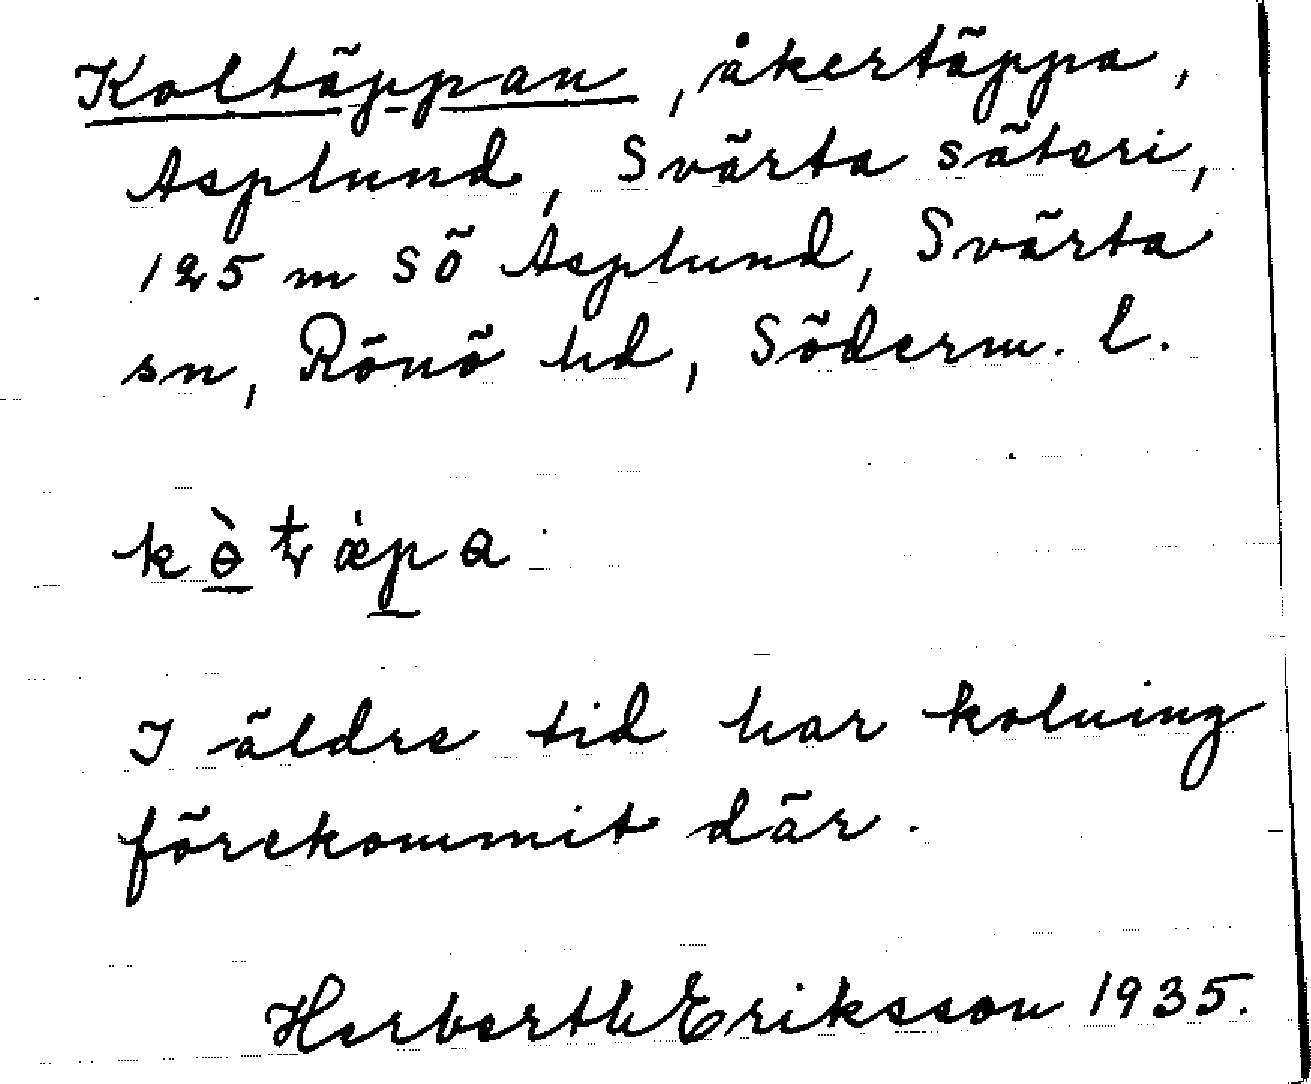 Koltäppan, åkertäppa,
Asplund, Svärta säteri,
125 m sö Asplund, Svärta
sn, Rönö hd, Söderm. l.
I äldre tid har kolning
förekommit där.
Herberth Eriksson 1935.